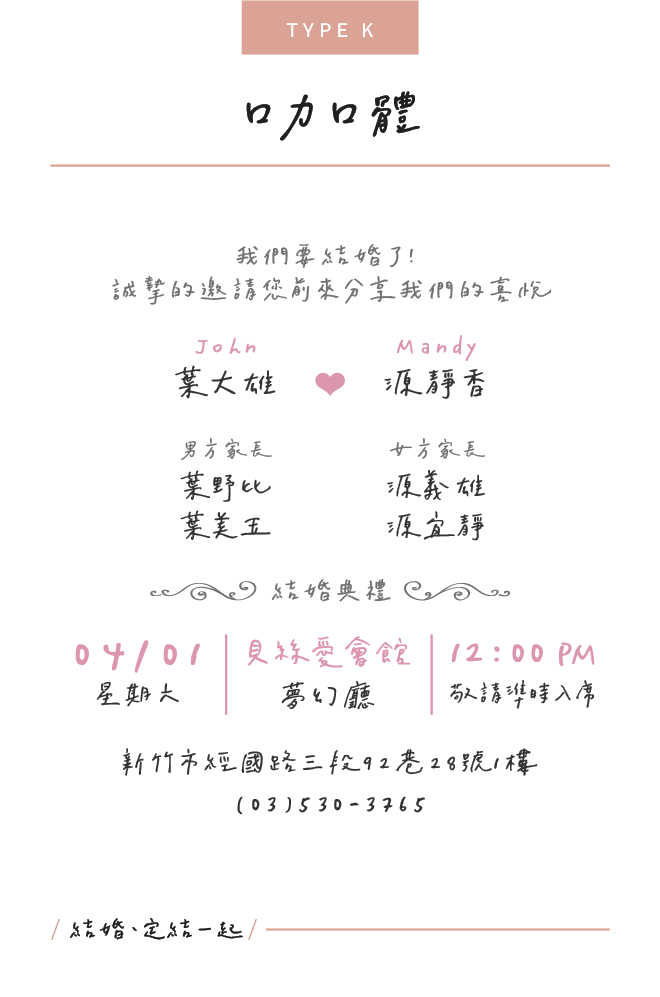 TYPE K
口力口體
我們要結婚了!
誠摯的邀請您前來分享我們的喜悅
John Mandy
葉大雄 源靜香
男方家長 女方家長
葉野比 源義雄
葉美玉 源宜靜
結婚典禮
04/01 貝絲愛會館 12:00 PM
星期六 夢幻廳 敬請準時入席
新竹市經國路三段92巷28號1樓
(03)530-3765
/結婚、定結一起/